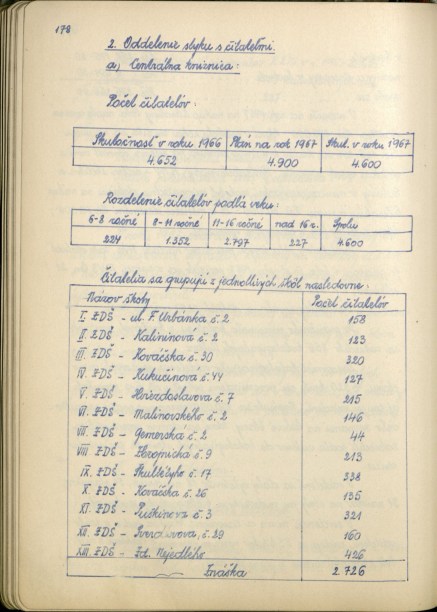 178
2. Oddelenie styku s čitateľmi.
a, Centrálna knižnica:
Počet čitateľov:
Skutočnosť v roku 1966 Plán na rok 1967 Skut. v roku 1967
4.652 4.900 4.600
Rozdelenie čitateľov podľa veku:
6-8 ročné 8-11 ročné 11-16 ročné nad 16 r. Spolu
224 1.352 2.797 227 4.600
Čitatelia sa grupujú z jednotlivých škôl nasledovne:
Názov školy Počet čitateľov
I. ZDŠ - ul. F. Urbánka č. 2 158
II. ZDŠ - Kalininová č. 2 123
III. ZDŠ - Kováčska č. 30 320
IV. ZDŠ - Kukučínová č. 44 127
V. ZDŠ - Hviezdoslavova č. 7 215
VI. ZDŠ - Malinovského č. 2 146
VII. ZDŠ - Gemerská č. 2 44
VIII. ZDŠ - Zbrojničná č. 9 213
IX. ZDŠ - Škultétyho č. 17 338
X. ZDŠ - Kováčska č. 26 135
XI. ZDŠ - Puškinova č. 3 321
XII. ZDŠ - č. 29 160
XIII. ZDŠ - Zd. Nejedlého 426
Znáška 2 726